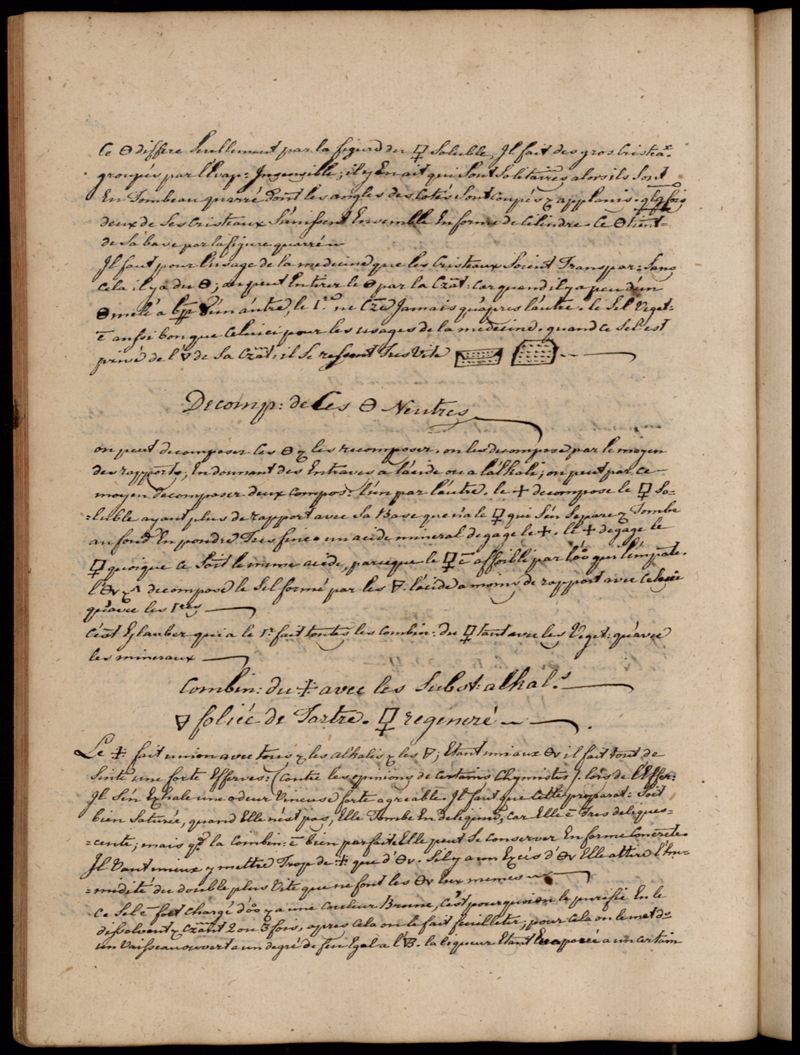 Ce 🜔 differe Seullement par la figure du 🜿 Soluble, Il fait des gros Cristx.
groupés par l'Evap: Insensible; il y En ait qui Sont Solitaires alors ils Sont
En Tombeau quarré dont les angles des cotés Sont coupés & applanis. qlq fois
deux de Ses Cristeaux S'unissent Ensemble En forme de Cilindre. Ce 🜔 tient
de Sa base par la figure quarrée
Il faut pour l'usage de la medecine que les Cristeaux Soient Transpar: Sans
Cela il y a du 🜔; on peut Entirer le 🜔 par la Czat: Car quand il y a peu d'un
🜔 melé a d'un autre, le 1er ne Cze Jamais qu'apres l'autre. le Sel Veget
ē aussi bon que Celui ci pour les usages de la medecine. quand ce Sel est
privé de l'🜄 de Sa Czat; il Se Tres Vite
Decomp: de Ces 🜔 Neutres
on peut decomposer les 🜔 & les recomposer. on les decompose par le moyen
des rapports, En donnant des Entraves a l'acide ou a l'alkali; on peut par ce
moyen decomposer deux compos: l'un par l'autre. le 🜊 decompose le 🜿 So-
-luble ayant plus de rapport avec Sa Base que n'a le 🜿 qui S'en Separe & Tombe
au fond En poudre Tres fine. un acide mineral degage le 🜊. le 🜊 degage le
🜿 quoique ce Soit le meme acide, parceque le 🜿 ē affoibli par l'🝆 qui l'empate.
l' decompose le Sel formé par les 🜃. l'acide a moins de rapport avec Celle ci
qu'avec les 1ers
C'est Glauber qui a le 1er fait toutes les Combin: du 🜿 tant avec les Veget: qu'avec
les mineraux
Combin: du 🜊 avec les Subst: alkal.s
🜃 foliée de Tartre. 🜿 regeneré
Le 🜊 fait union avec tous les alkalis & les 🜃; Etant uni aux il fait tout de
Suite une forte Efferves: (Contre les opinions de Certains Chymistes). lors de l'Effer:
Il S'en Exhale une odeur Vineuse forte agreable. Il faut que Cette preparat: Soit
bien Saturée, quand Elle n'est pas, Elle Tombe En deligium, Car Elle ē Tres deliques-
-cente; mais qd la Combin: ē bien parfaite Elle peut Se Conserver En forme Concrete.
Il Vaut mieux y mettre Trop de 🜊 que d'. S'il y a un Excés d' Elle attire l'hu-
-midité du double plus Vite que ne font les Eux memes
Ce Sel ē fort chargé d'🝆 & a une Couleur Brune, C'est pourquoi on le purifie En le
dissolvent & Czant 2 ou 3 fois, apres Cela on le fait feuilleter; pour Cela on le met ds
un Vaisseau ouvert a un degré de feu Egal a l'. la liqueur Etant Evaporée a un Certain